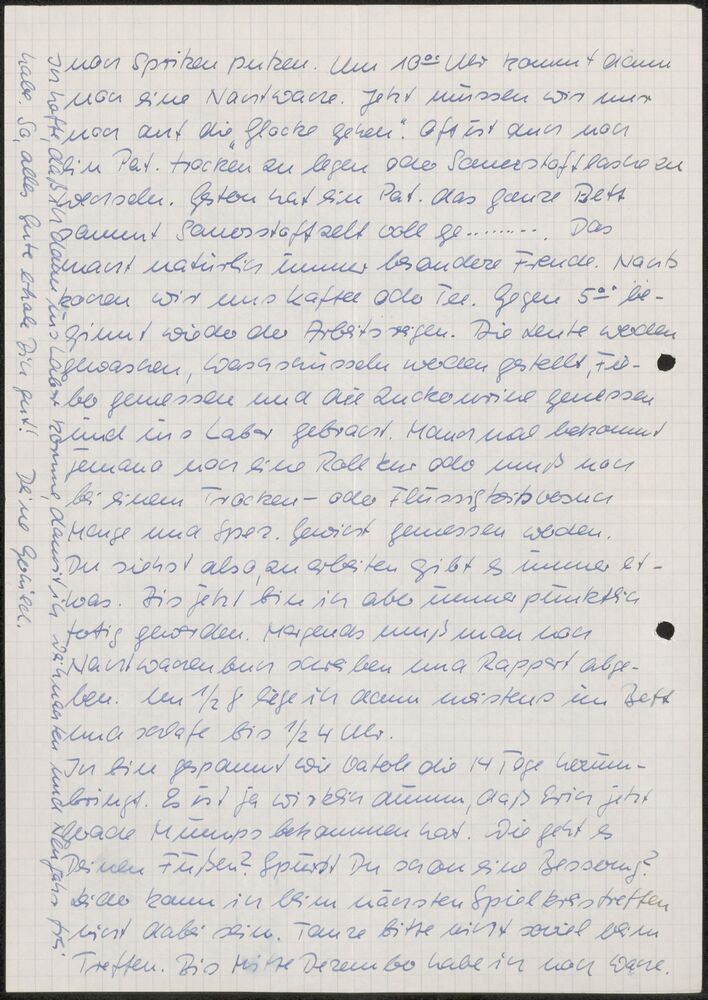 noch Spritzen putzen. Um 10⁰⁰ Uhr kommt dann
noch eine Nachtwache. Jetzt müssen wir nur
noch auf die „Glocke gehen“. Oft ist auch noch
ein Pat. trocken zu legen oder Sauerstoffflaschen zu
wechseln. Gestern hat ein Pat. das ganze Bett
samt Sauerstoffzelt voll ge......... . Das
macht natürlich immer besondere Freude. Nachts
kochen wir uns Kaffee oder Tee. Gegen 5⁰⁰ be-
ginnt wieder der Arbeitsreigen. Die Leute werden
gewaschen, Waschschüsseln werden gestellt, Fie-
ber gemessen und die Zuckerurine gemessen
und ins Labor gebracht. Manchmal bekommt
jemand noch eine Rollkur oder muß noch
bei einem Trocken- oder Flüssigkeitsversuch
Menge und Spez. Gewicht gemessen werden.
Du siehst also, zu arbeiten gibt es immer et-
was. Bis jetzt bin ich aber immer pünktlich
fertig geworden. Morgends muß man noch
Nachtwachenbuch schreiben und Rapport abge-
ben. Um 1/2 8 liege ich dann meistens im Bett
und schlafe bis 1/2 4 Uhr.
Ich bin gespannt wie die 14 Tage herum-
bringt. Es ist ja wirklich dumm, daß Erich jetzt
gerade Mumps bekommen hat. Wie geht es
Deinen Füßen? Spürst Du schon eine Besserung?
Leider kann ich beim nächsten Spielkreistreffen
nicht dabei sein. Tanze bitte nicht soviel beim
Treffen. Bis Mitte Dezember habe ich noch Wache.
Ich hoffe, daß ich dann ins Labor komme, damit ich Weihnachten und Neujahr frei
habe. So, alles Gute erhole Dich gut! Deine